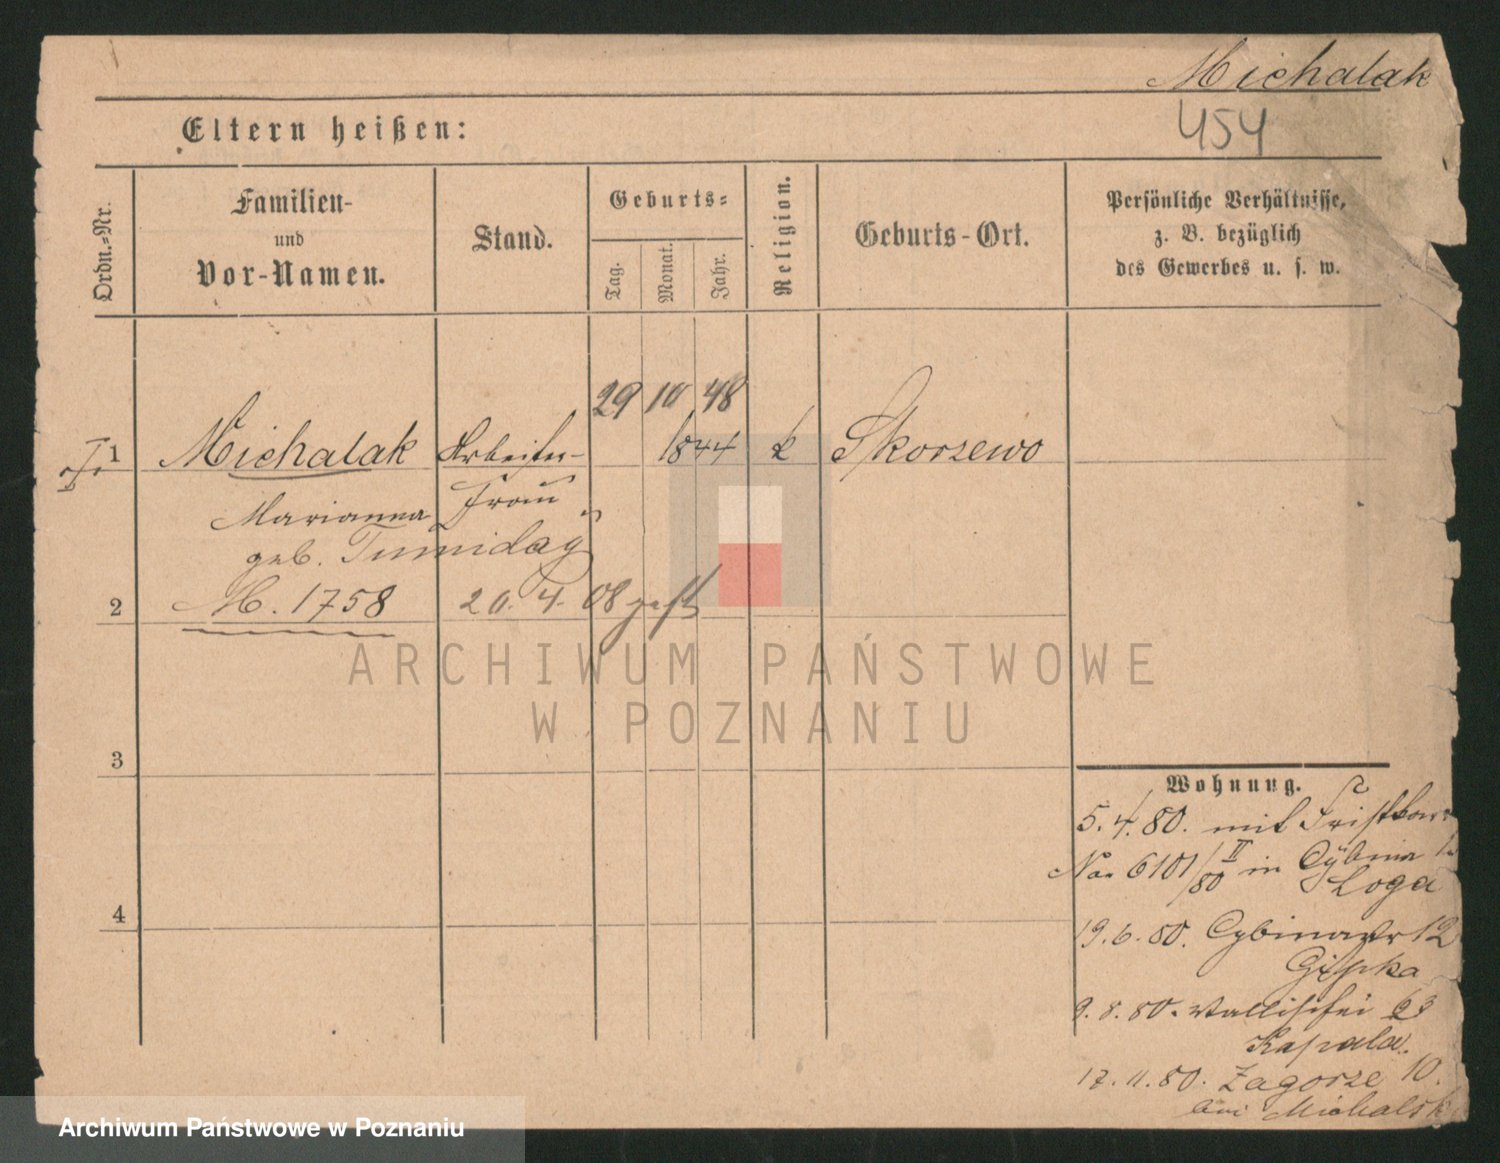 Michalak
454
Eltern heißen:
Ordn.-Nr.
Familien-
und
Vor-Namen.
Stand.
Geburts-
Tag.
Monat.
Jahr.
Religion.
Geburts-Ort.
Persönliche Verhältnisse,
z. B. bezüglich
des Gewerbes u. s. w.
29 10 48
1 Michalak Arbeiter- 1844 k Skorzewo
Marianna Frau
geb. Tumidag
2 M. 1758 20. 4. 08 gest
ARCHIWUM PAŃSTWOWE
W POZNANIU
3
4
Wohnung.
5. 4. 80. mit
No. 6101/II 80 in Cybina
Loga
19. 6. 80. Cybinastr 12
Gipka
9. 8. 80. Wallischei 63
Kapala.
17. 11. 80. Zagorze 10.
bei Michalsk
Archiwum Państwowe w Poznaniu